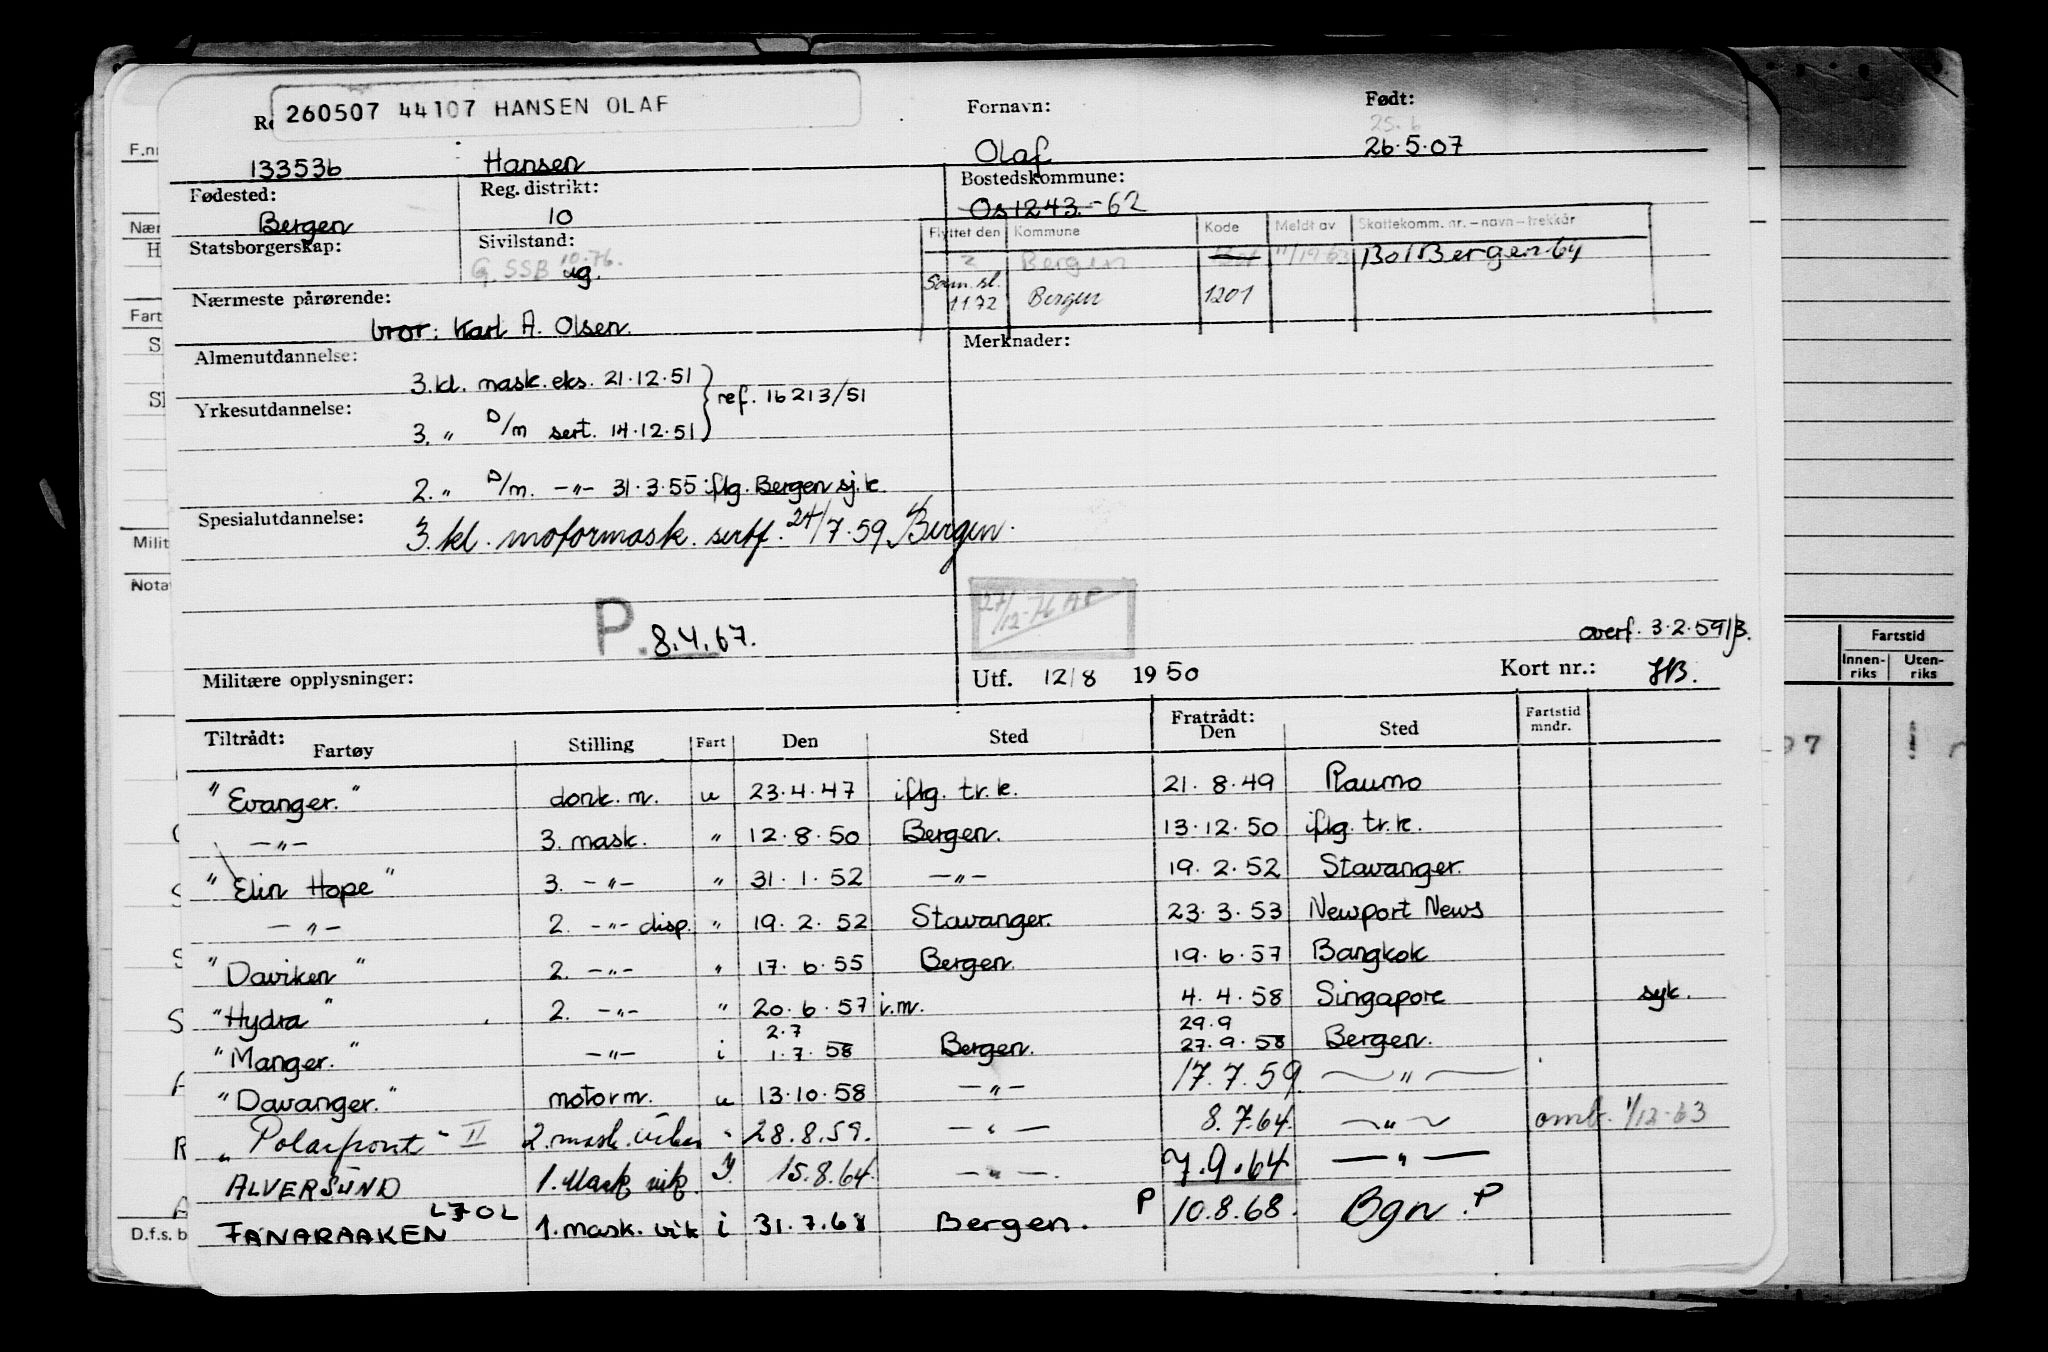 260507 44107 HANSEN OLAF
Fornavn: Født:
25.6
133536 Hansen Olaf 26.5.07
Fødested: Reg. distrikt: Bostedskommune:
Bergen 10 Os 1243.-62
Statsborgerskap: Sivilstand:
G. SSB 10.76. ug.
Flyttet den Kommune Kode Meldt av Skattekomm. nr. – navn – trekkår
2 Bergen 11/1963 1301 Bergen 64
Sam. sl.
1172 Bergen 1201
Nærmeste pårørende:
bror: Karl A. Olsen.
Almenutdannelse: Merknader:
3. kl. mask. eks. 21.12.51
ref. 16213/51
Yrkesutdannelse:
3. " D/m sert. 14.12.51
2. " D/m. -"- 31.3.55 iflg. Bergen sj.k.
Spesialutdannelse:
3. kl. motormask. sertf. 24/7.59 Bergen.
27/12-76 AP
P. 8.4.67.
overf. 3.2.59/
Militære opplysninger: Utf. 12/8 1950 Kort nr.: HB.
Tiltrådt: Fartøy Stilling Fart Den Sted Fratrådt: Den Sted Fartstid mndr.
"Evanger." donk.m. u 23.4.47 iflg. tr.k. 21.8.49 Raumo
-"- 3. mask. " 12.8.50 Bergen. 13.12.50 iflg. tr.k.
"Elin Hope" 3. -"- " 31.1.52 -"- 19.2.52 Stavanger.
-"- 2. -"- disp. " 19.2.52 Stavanger. 23.3.53 Newport News
"Daviken" 2. -"- " 17.6.55 Bergen. 19.6.57 Bangkok
"Hydra" 2. -"- " 20.6.57 i.m. 4.4.58 Singapore syk.
2.7 29.9
"Manger." -"- i 1.7.58 Bergen. 27.9.58 Bergen.
"Davanger." motorm. u 13.10.58 -"- 17.7.59. -"-
"Polarfront" II 2. mask. vikar " 28.8.59. -"- 8.7.64. -"- omb. 1/12-63
ALVERSUND 1. Mask vik. 15.8.64. -"- 7.9.64 -"-
LJOL
FANARAAKEN 1. mask. vik i 31.7.68 Bergen. P 10.8.68. Bgn. P
F.nr
Nær
H
Fart
S
Milit
Nota
D.f.s. b
Fartstid
Innen-
riks
Uten-
riks